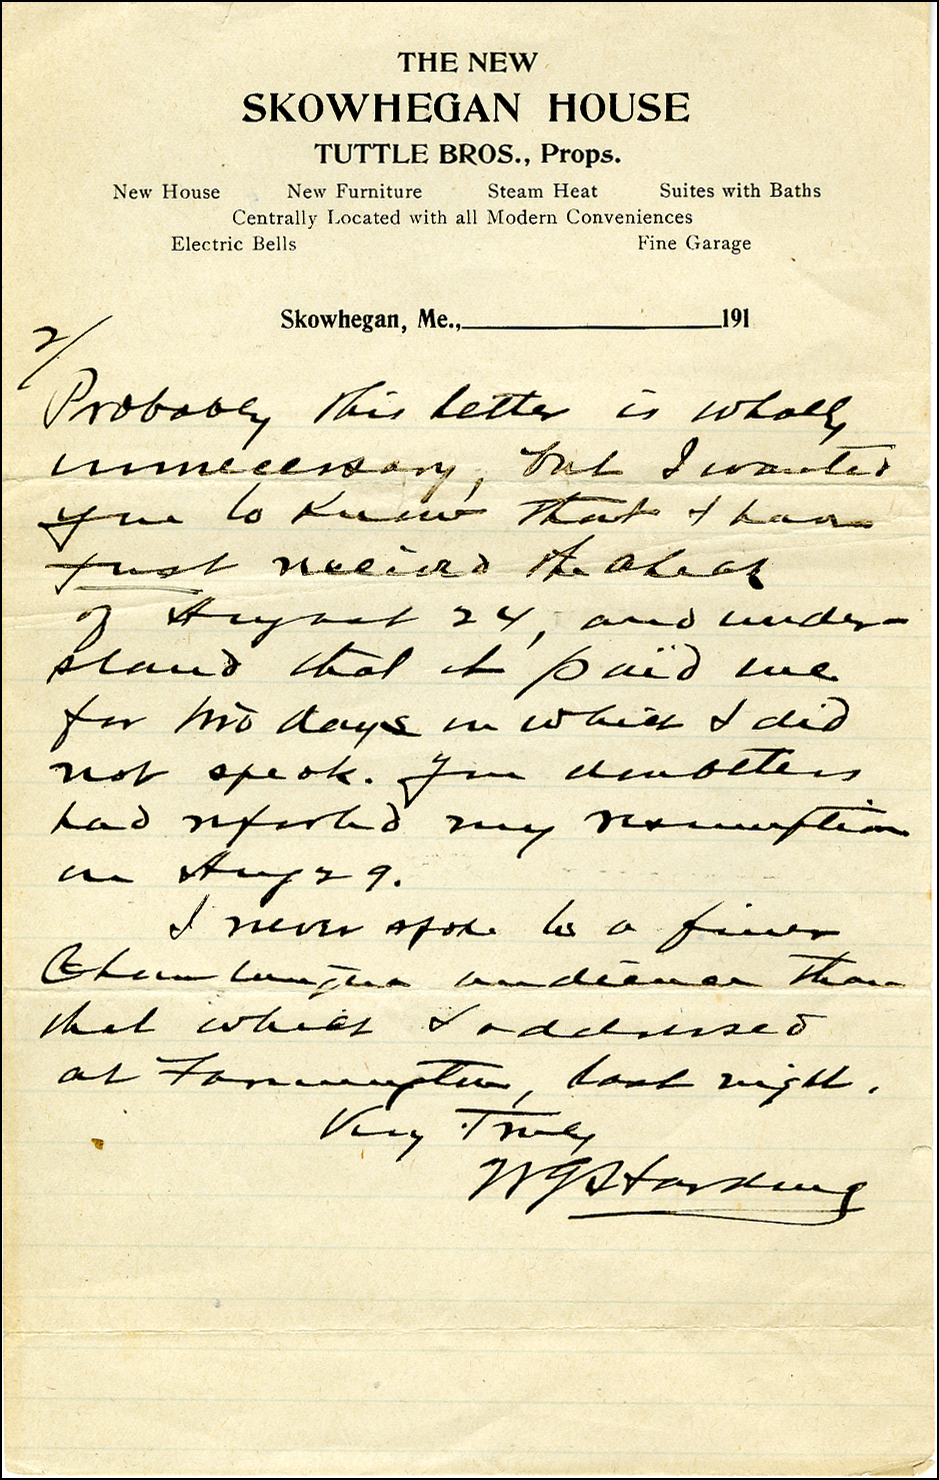 THE NEW
SKOWHEGAN HOUSE
TUTTLE BROS., Props.
New House New Furniture Steam Heat Suites with Baths
Centrally Located with all Modern Conveniences
Electric Bells Fine Garage
Skowhegan, Me., 191
2/
Probably this letter is wholly
unnecessary, but I wanted
you to know that I have
just received the check
of August 24, and under-
stand that it paid me
for two days in which I did
not speak. You doubtless
had reported my resumption
on Aug 29.
I never spoke to a finer
Chautauqua audience than
that which I addressed
at Farmington, last night.
Very Truly
WGHarding